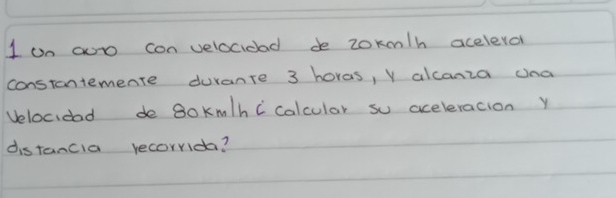 1 un auto con velocidad de 20 km/h acelera
constantemente durante 3 horas, y alcanza una
velocidad de 80km/h ¿ calcular su aceleracion y
distancia recorrida?